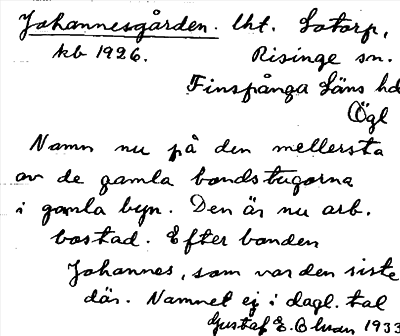 Johannesgården. lht. Sätorp,
kb 1926. Risinge sn.
Finspånga Läns hd
Ögl
Namn nu på den mellersta
av de gamla bondstugorna
i gamla byn. Den är nu arb.
bostad. Efter bonden
Johannes, som var den siste
där. Namnet ej i dagl. tal
Gustaf E. 1933